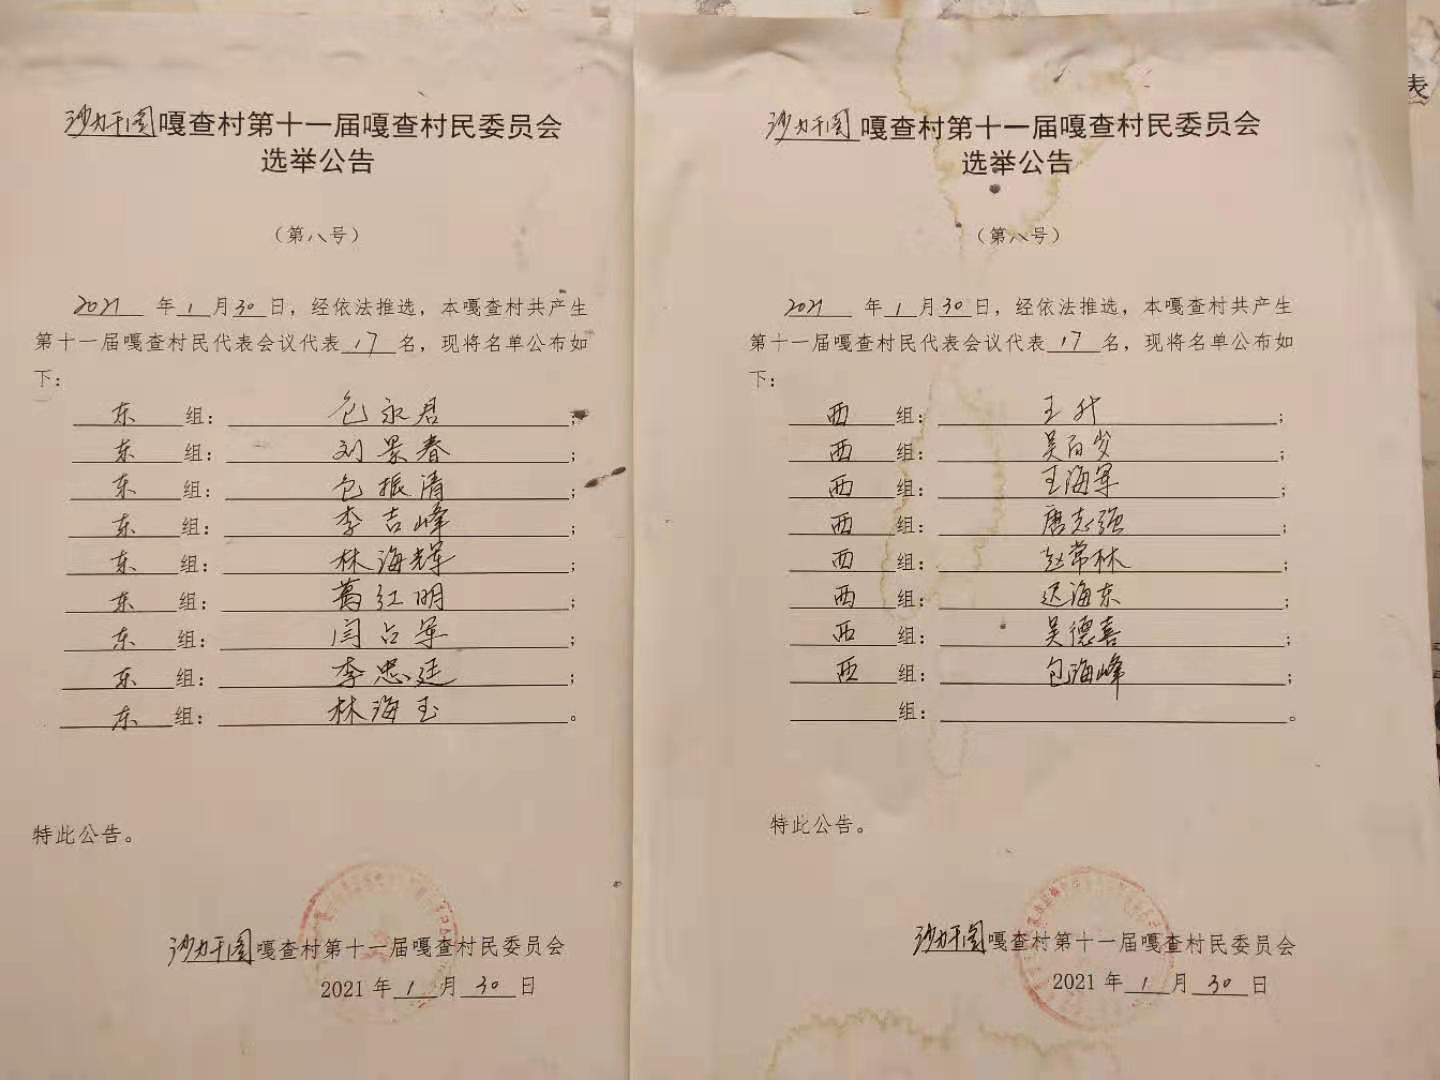 沙力干图嘎查村第十一届嘎查村民委员会
选举公告
（第八号）
2021年1月30日，经依法推选，本嘎查村共产生
第十一届嘎查村民代表会议代表17名，现将名单公布如
下：
东组：包永君；
东组：刘景春；
东组：包振清；
东组：李吉峰；
东组：林海辉；
东组：葛红明；
东组：闫占军；
东组：李忠廷；
东组：林海玉。
特此公告。
沙力干图嘎查村第十一届嘎查村民委员会
2021年1月30日
沙力干图嘎查村第十一届嘎查村民委员会
选举公告
（第八号）
2021年1月30日，经依法推选，本嘎查村共产生
第十一届嘎查村民代表会议代表17名，现将名单公布如
下：
西组：王升；
西组：吴百岁；
西组：王海军；
西组：唐志强；
西组：赵常林；
西组：迟海东；
西组：吴德喜；
西组：包海峰；
组：。
特此公告。
沙力干图嘎查村第十一届嘎查村民委员会
2021年1月30日
表